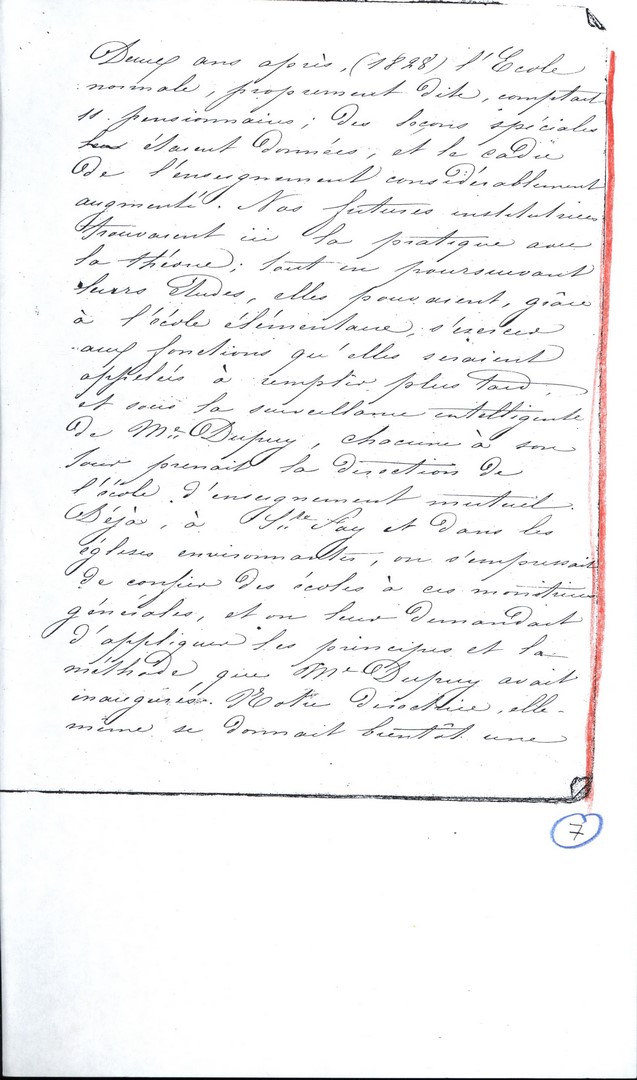 Deux ans après, (1828) l'Ecole
normale, proprement dite, comptait
11 pensionnaires; des leçons spéciales
leur étaient données, et le cadre
de l'enseignement considérablement
augmenté. Nos futures institutrices
trouvaient ici la pratique avec
la théorie; tout en poursuivant
leurs études, elles pouvaient, grâce
à l'école élémentaire, s'exercer
aux fonctions qu'elles seraient
appelées à remplir plus tard,
et sous la surveillance intelligente
de Me Dupuy, chacune à son
tour prenait la direction de
l'école d'enseignement mutuel.
Déjà, à Ste Foy et dans les
églises environnantes, on s'empressait
de confier des écoles à ces monitrices
générales, et on leur demandait
d'appliquer les principes et la
méthode, que Me Dupuy avait
inaugurés. Notre directrice, elle-
même se donnait bientôt une
7